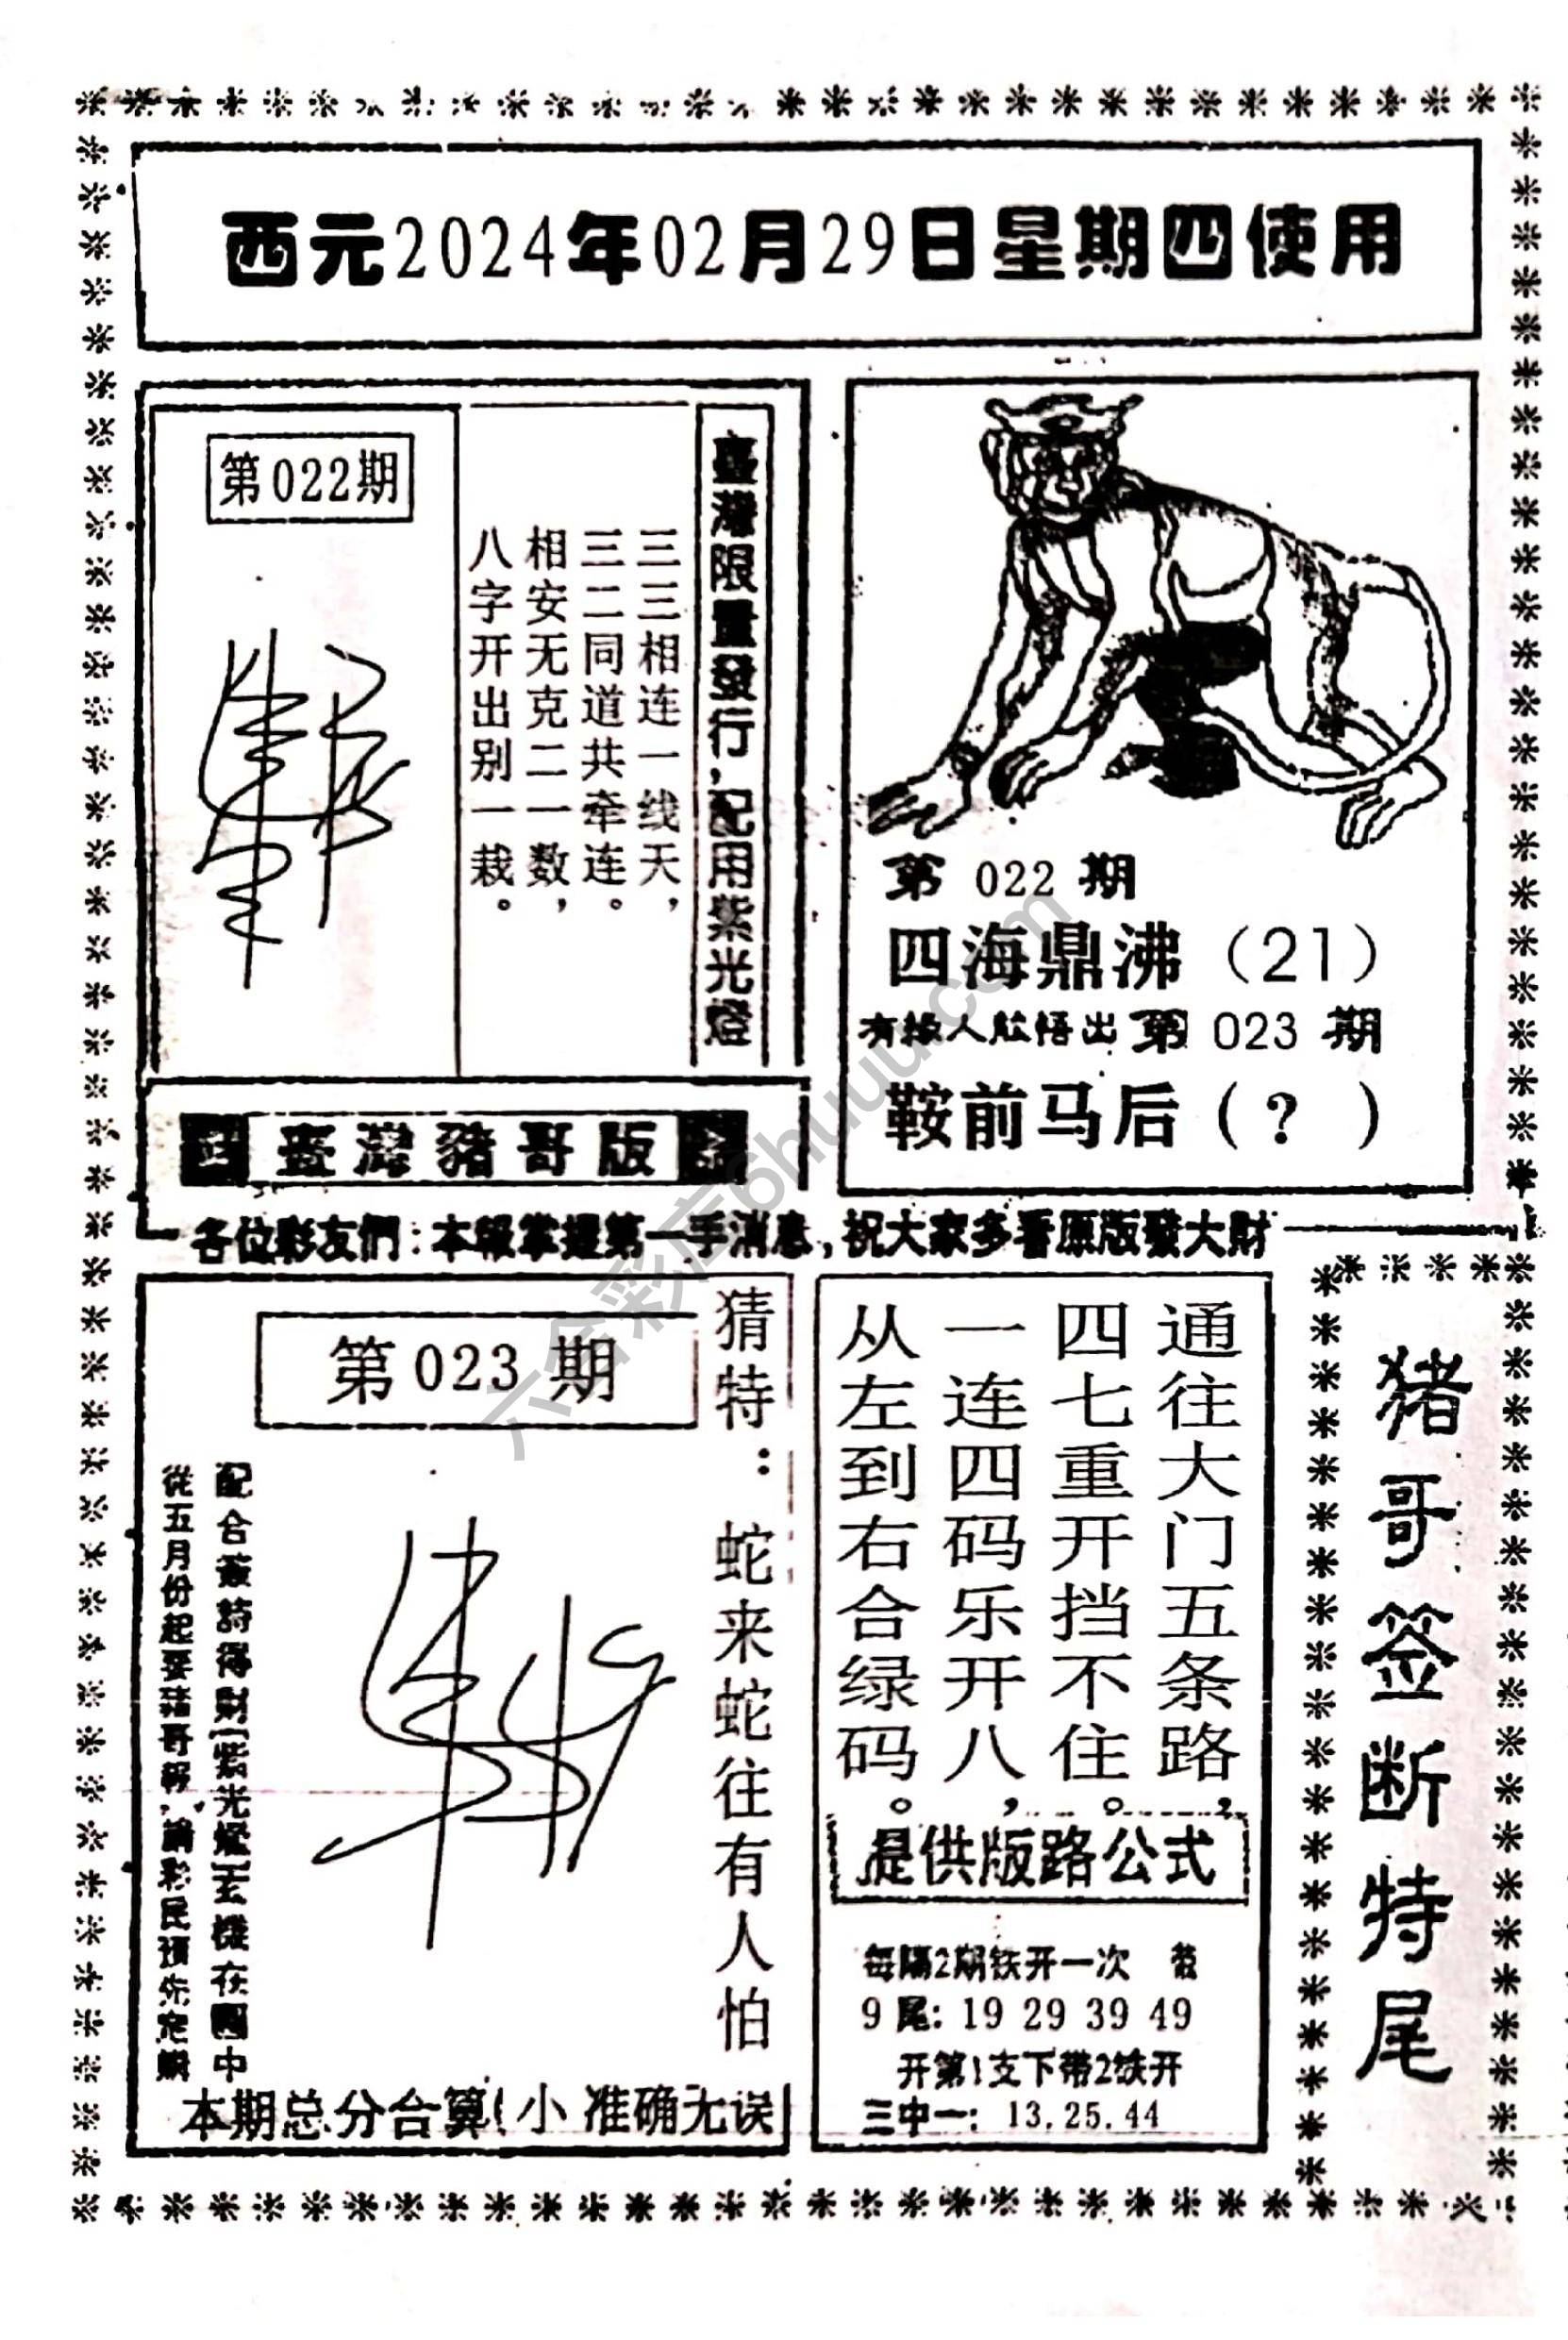 西元2024年02月29日星期四使用
第022期
臺灣限量發行,配用紫光燈
三三相连一线天,
三二同道共牵连。
相安无克二一数,
八字开出别一栽。
第 022 期
四海鼎沸（21）
有缘人 悟出 第 023 期
鞍前马后（? ）
臺灣豬哥版
各位彩友們:本報掌握第一手消息,祝大家多看原版發大財
第023期
猜特：蛇来蛇往有人怕
配合簽詩得財[紫光燈]玄機在圖中
從五月份起要豬哥報,請彩民預先定購
本期总分合算(小 准确无误
通往大门五条路,
四七重开挡不住。
一连四码乐开八,
从左到右合绿码。
提供版路公式
每隔2期铁开一次
9尾: 19 29 39 49
开第1支下带2铁开
三中一: 13.25.44
猪哥签断特尾
六合彩店6huuu.com